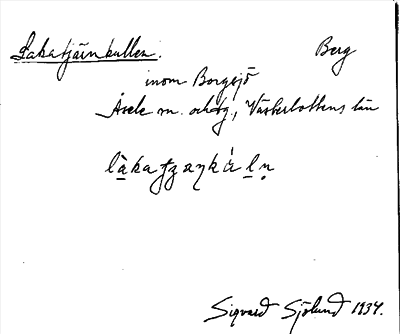 Lakatjärnkullen. Berg
inom Borgsjö
Åsele sn. och tg., Västerbottens län
Sigvard Sjölund 1934.